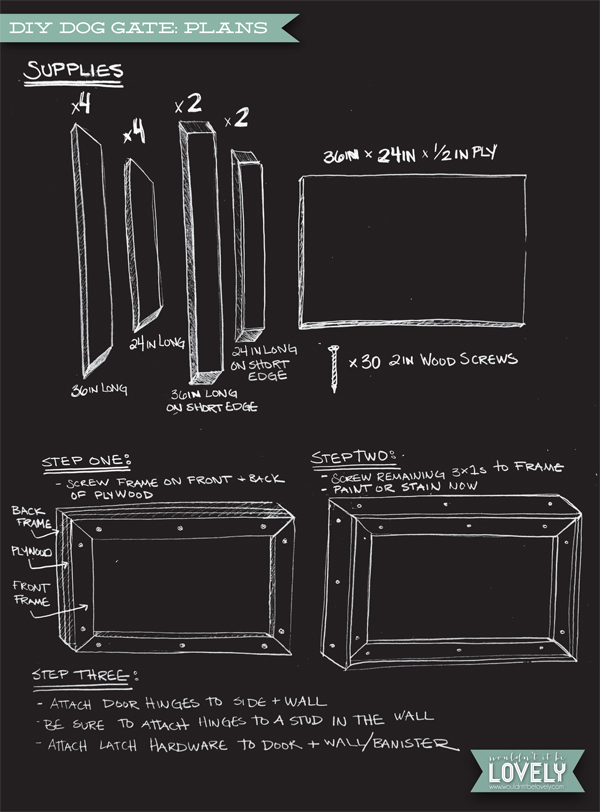 DIY DOG GATE: PLANS
SUPPLIES
x4
x4
x2
x2
36IN LONG
24IN LONG
36IN LONG
ON SHORT EDGE
24IN LONG
ON SHORT
EDGE
36IN x 24IN x 1/2 IN PLY
x30 2IN WOOD SCREWS
STEP ONE:
- SCREW FRAME ON FRONT + BACK
OF PLYWOOD
BACK
FRAME
PLYWOOD
FRONT
FRAME
STEP TWO:
- SCREW REMAINING 3x1s TO FRAME
- PAINT OR STAIN NOW
STEP THREE:
- ATTACH DOOR HINGES TO SIDE + WALL
- BE SURE TO ATTACH HINGES TO A STUD IN THE WALL
- ATTACH LATCH HARDWARE TO DOOR + WALL/BANISTER
wouldn't it be
LOVELY
www.wouldntitbelovely.com